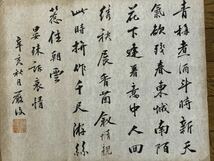 青梅煮酒斗時新天
氣欲殘春東城南陌
花下逢着意中人回
繡袂展香茵叙情親
此時拚作千尺游絲
惹住朝雲
晏殊訴衷情
辛亥秋月